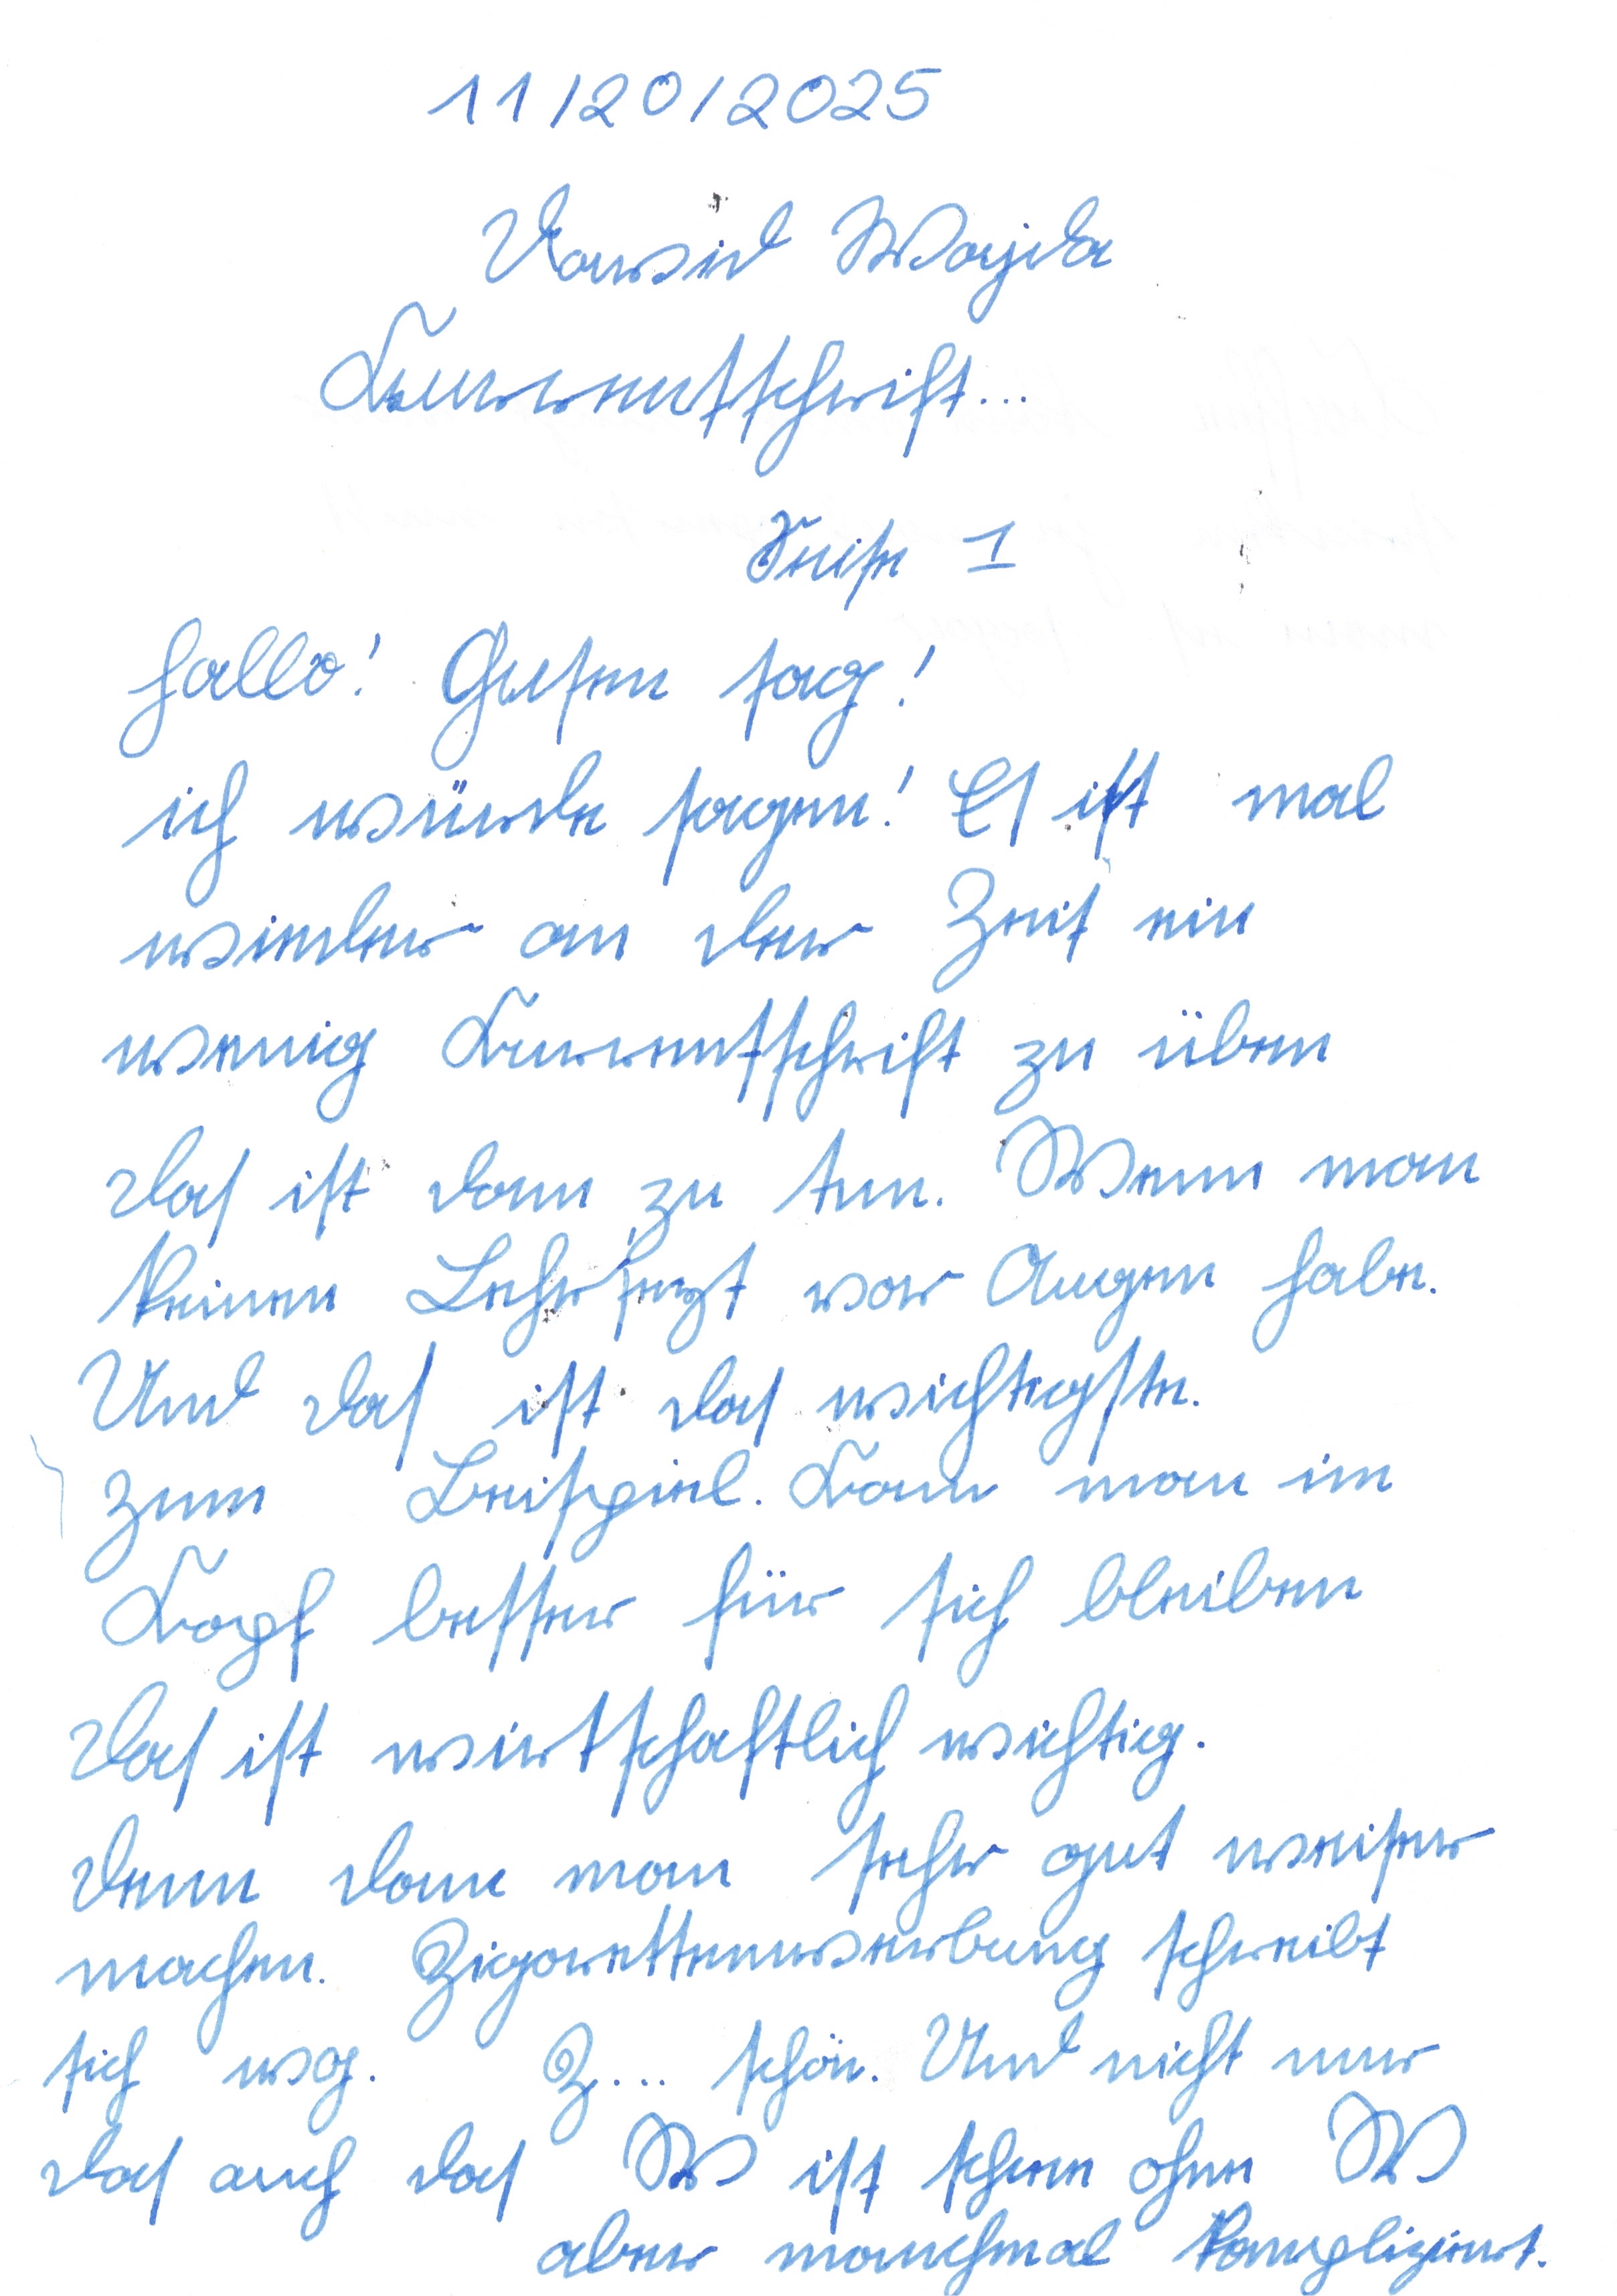 11/20/2025
Dawid Wajda
Kurrentschrift...
Seite 1
Hallo! Guten tag!
ich würde sagen! Es ist mal
wieder an der Zeit ein
wenig Kurrentschrift zu üben
das ist dann zu tun. Wenn man
keinen Lehrsezt vor Augen habe.
Und das ist das wichtigste.
zum Beispiel. Kann man im
Kopf besser für sich bleiben
das ist wirtschaftlich wichtig.
denn dann man sehr gut weiter
machen. Zigarettenwerbung schreibt
sich wg. Z.... schön. Und nicht nur
das auch das W ist schene ohne W
aber manchmal kompliziert.